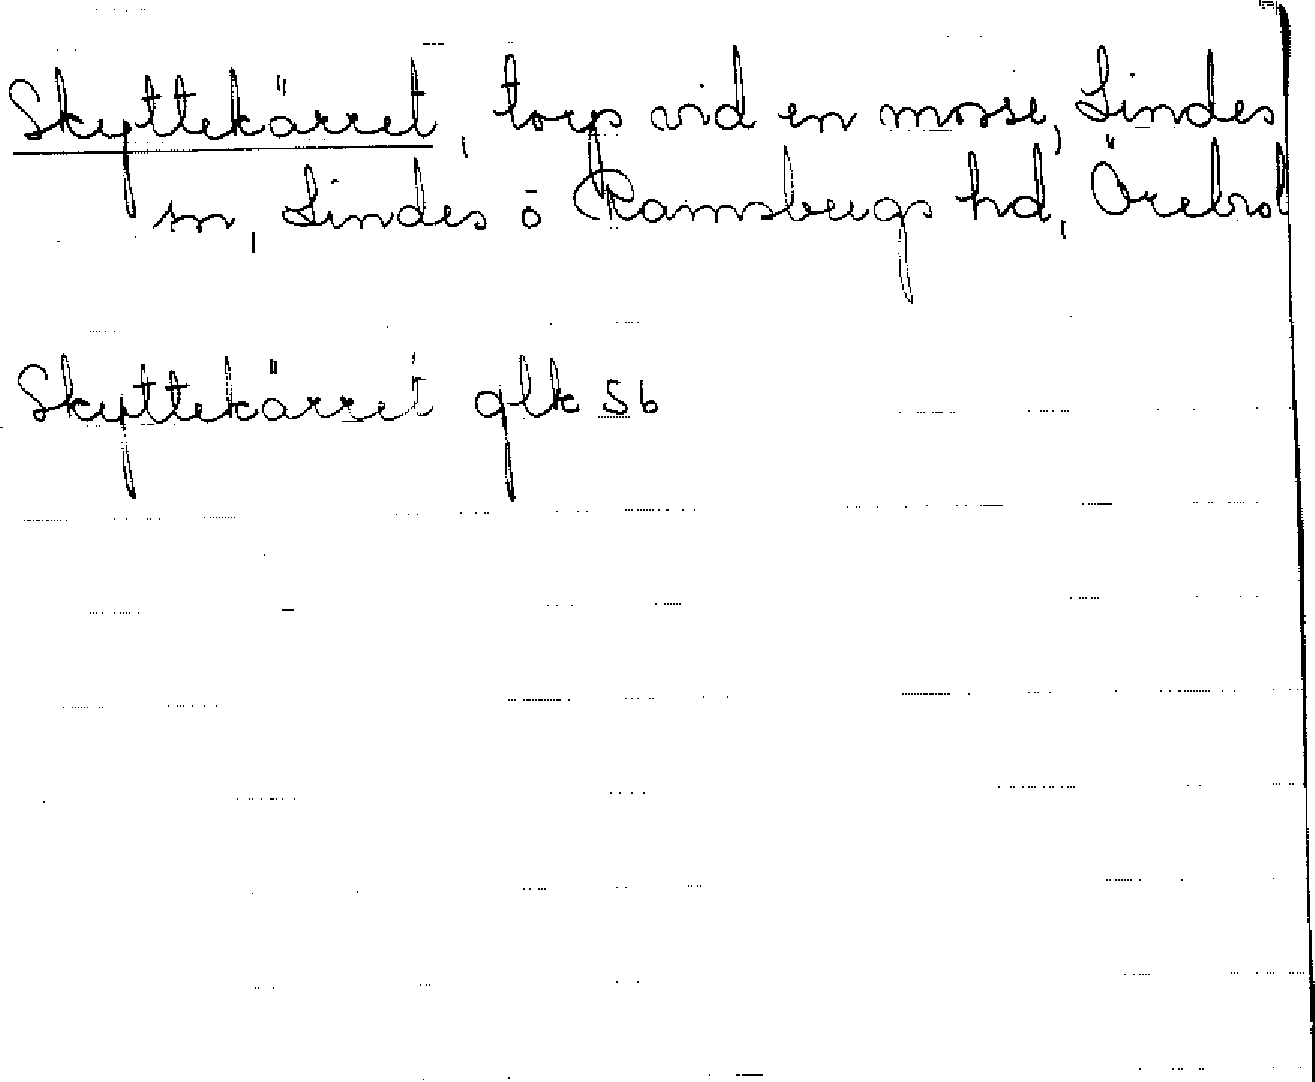 Skyttekärret, torp vid en mosse, Lindes
sn, Lindes o Ramsbergs hd, Örebro l
Skyttekärret glk 56